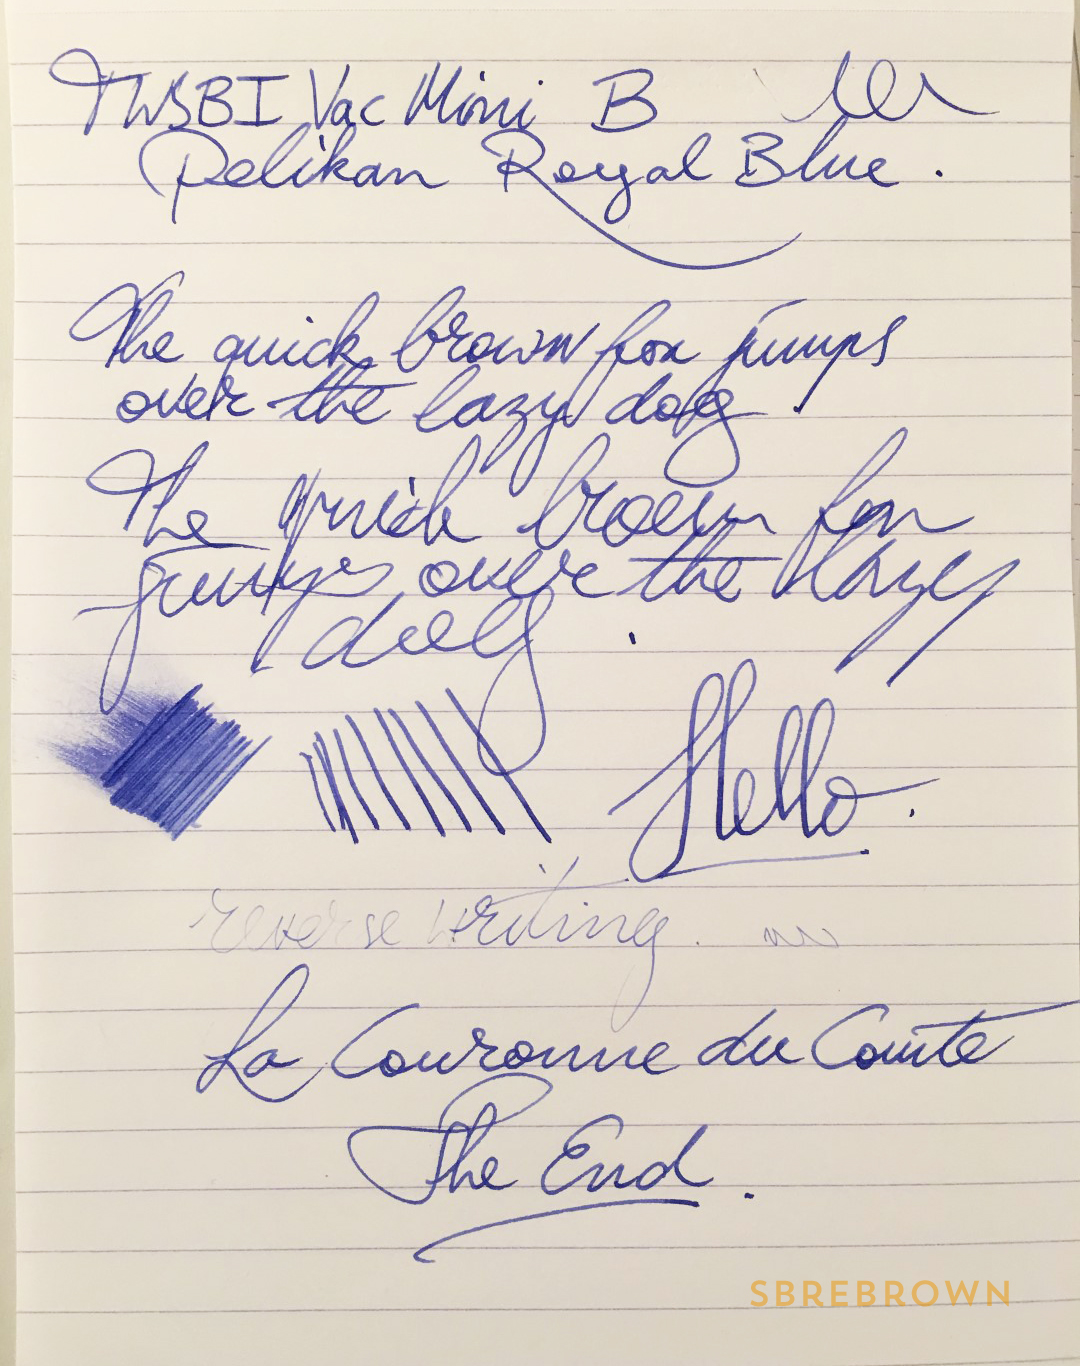 TWSBI Vac Mini B
Pelikan Royal Blue.
The quick brown fox jumps
over the lazy dog.
The quick brown fox
jumps over the lazy
dog.
Hello.
reverse writing.
La Couronne du Comte
The End.
SBREBROWN